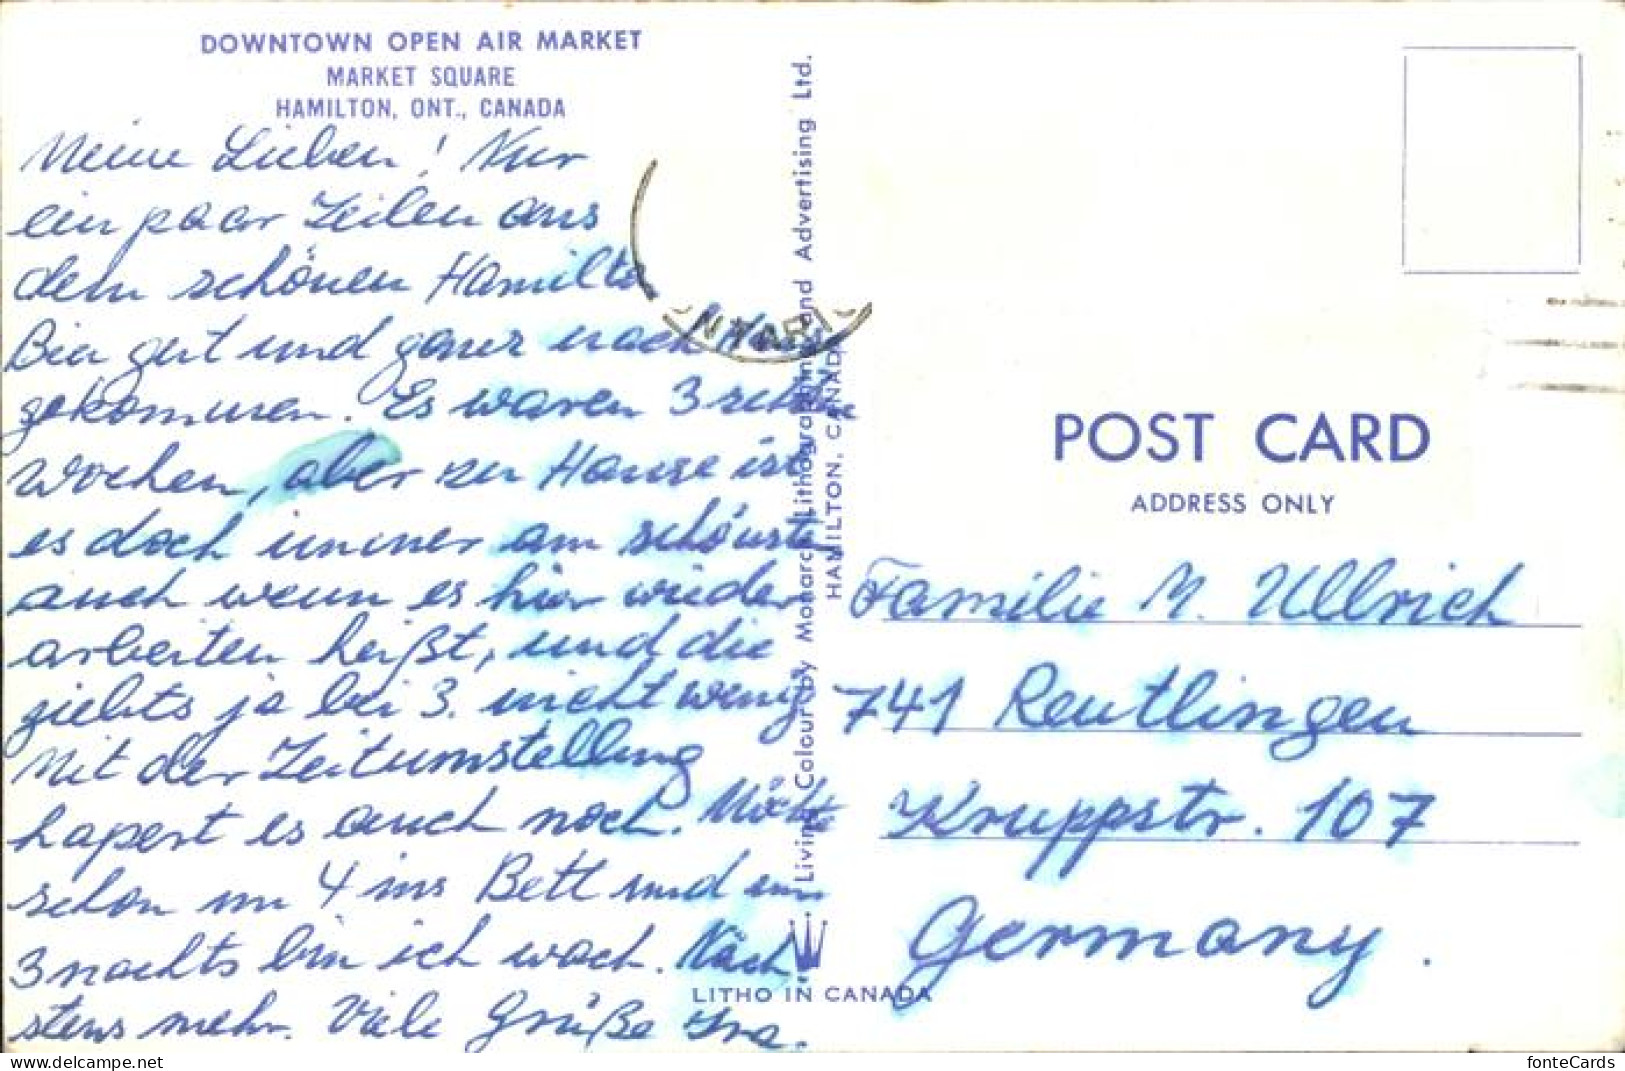 DOWNTOWN OPEN AIR MARKET
MARKET SQUARE
HAMILTON, ONT., CANADA
Meine Lieben! Nur
ein paar Zeilen aus
dem schönen Hamilton
Bin gut und ganz nach Haus
gekommen. Es waren 3 schöne
Wochen, aber zu Hause ist
es doch immer am schönste
auch wenn es hier wieder
arbeiten heißt, und die
giebts ja bei 3. nicht wenig
Mit der Zeitumstellung
hapert es auch noch. Möchte
schon um 4 ins Bett und um
3 nachts bin ich wach. Näch-
stens mehr. Viele Grüße
Living Colour by Monarch Lithographing and Advertising Ltd.
HAMILTON, CANADA
LITHO IN CANADA
POST CARD
ADDRESS ONLY
Familie M. Ullrich
741 Reutlingen
Kruppstr. 107
Germany.
delcampe.net
fonteCards